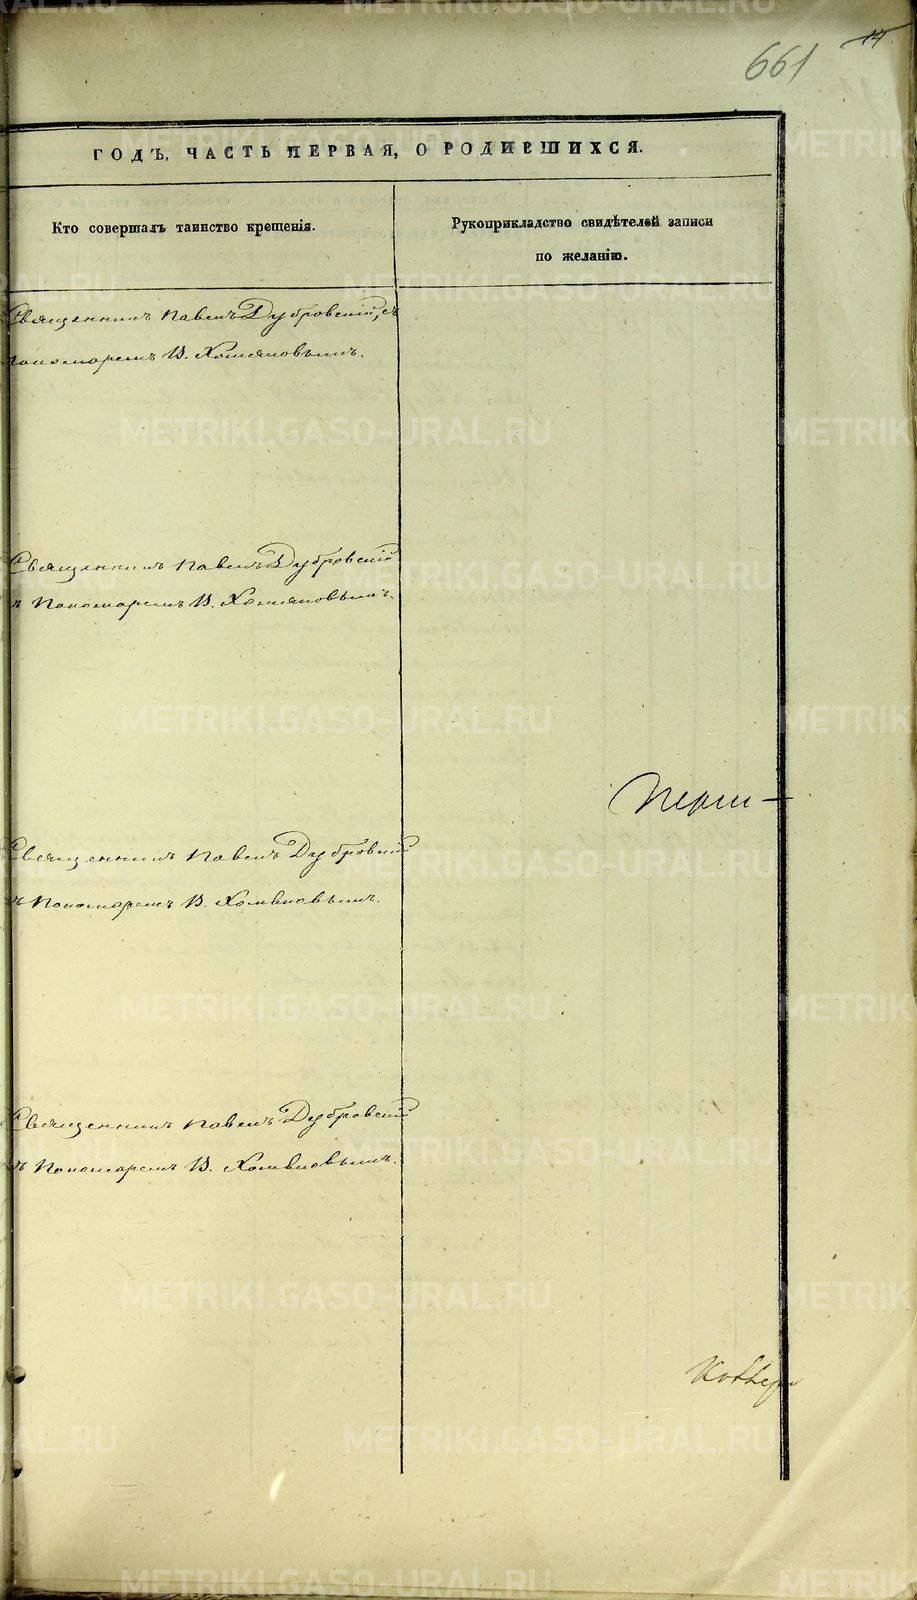 METRIKI.GASO-URAL.RU
14
661
ГОДЪ, ЧАСТЬ ПЕРВАЯ, О РОДИВШИХСЯ.
Кто совершалъ таинство крещенія.
Рукоприкладство свидѣтелей записи
по желанію.
Священникъ Павелъ Дубровскій, съ
пономаремъ В. Хомяковымъ.
Священникъ Павелъ Дубровскій
съ Пономаремъ В. Хомяковымъ.
Священникъ Павелъ Дубровскій
съ Пономаремъ В. Хомяковымъ.
Священникъ Павелъ Дубровскій
съ Пономаремъ В. Хомяковымъ.